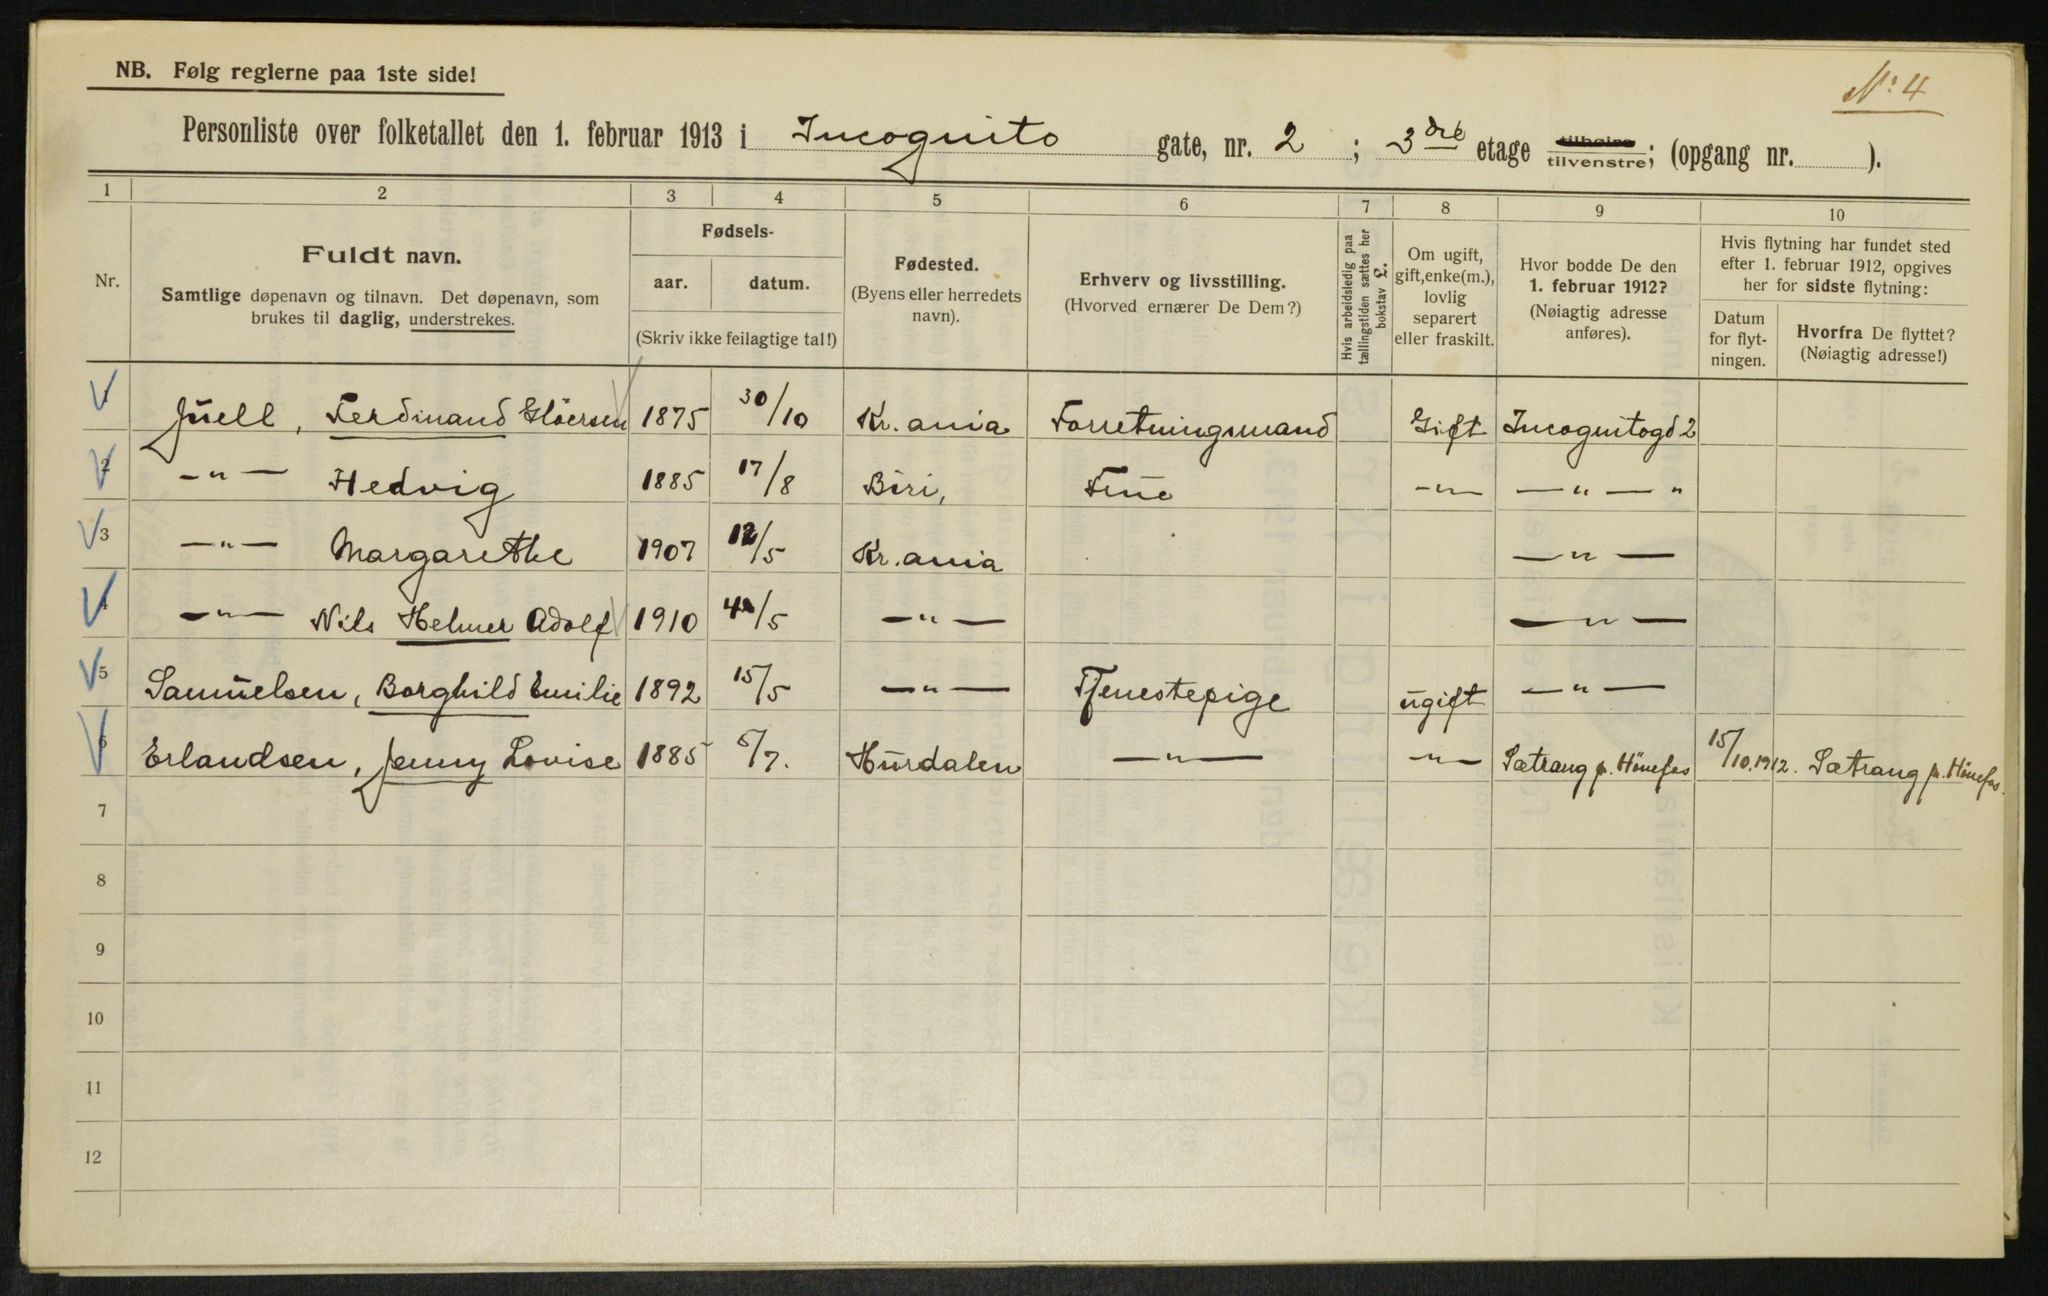 NB. Følg reglerne paa 1ste side!
No 4
Personliste over folketallet den 1. februar 1913 i Incognito gate, nr. 2 ; 3dre etage tilhøire tilvenstre; (opgang nr. ).
1 2 3 4 5 6 7 8 9 10
Nr.
Fuldt navn.
Samtlige døpenavn og tilnavn. Det døpenavn, som
brukes til daglig, understrekes.
Fødsels-
aar. datum.
(Skriv ikke feilagtige tal!)
Fødested.
(Byens eller herredets
navn).
Erhverv og livsstilling.
(Hvorved ernærer De Dem?)
Hvis arbeidsledig paa
tællingstiden sættes her
bokstav L.
Om ugift,
gift, enke(m.),
lovlig
separert
eller fraskilt.
Hvor bodde De den
1. februar 1912?
(Nøiagtig adresse
anføres).
Hvis flytning har fundet sted
efter 1. februar 1912, opgives
her for sidste flytning:
Datum
for flyt-
ningen.
Hvorfra De flyttet?
(Nøiagtig adresse!)
1 Juell, Ferdinand Gløersen 1875 30/10 Kr.ania Forretningsmand Gift Incognitogd 2
2 -"- Hedvig 1885 17/8 Biri, Frue -"- -"- "
3 -"- Margarethe 1907 12/5 Kr.ania -"-
4 -"- Nils Helmer Adolf 1910 4/5 -"- -"-
5 Samuelsen, Borghild Emilie 1892 15/5 -"- Tjenestepige ugift -"-
6 Erlandsen, Jenny Lovise 1885 5/7. Hurdalen -"- -"- Sætrang p. Hønefos 15/10.1912. Sætrang p. Hønefos.
7
8
9
10
11
12